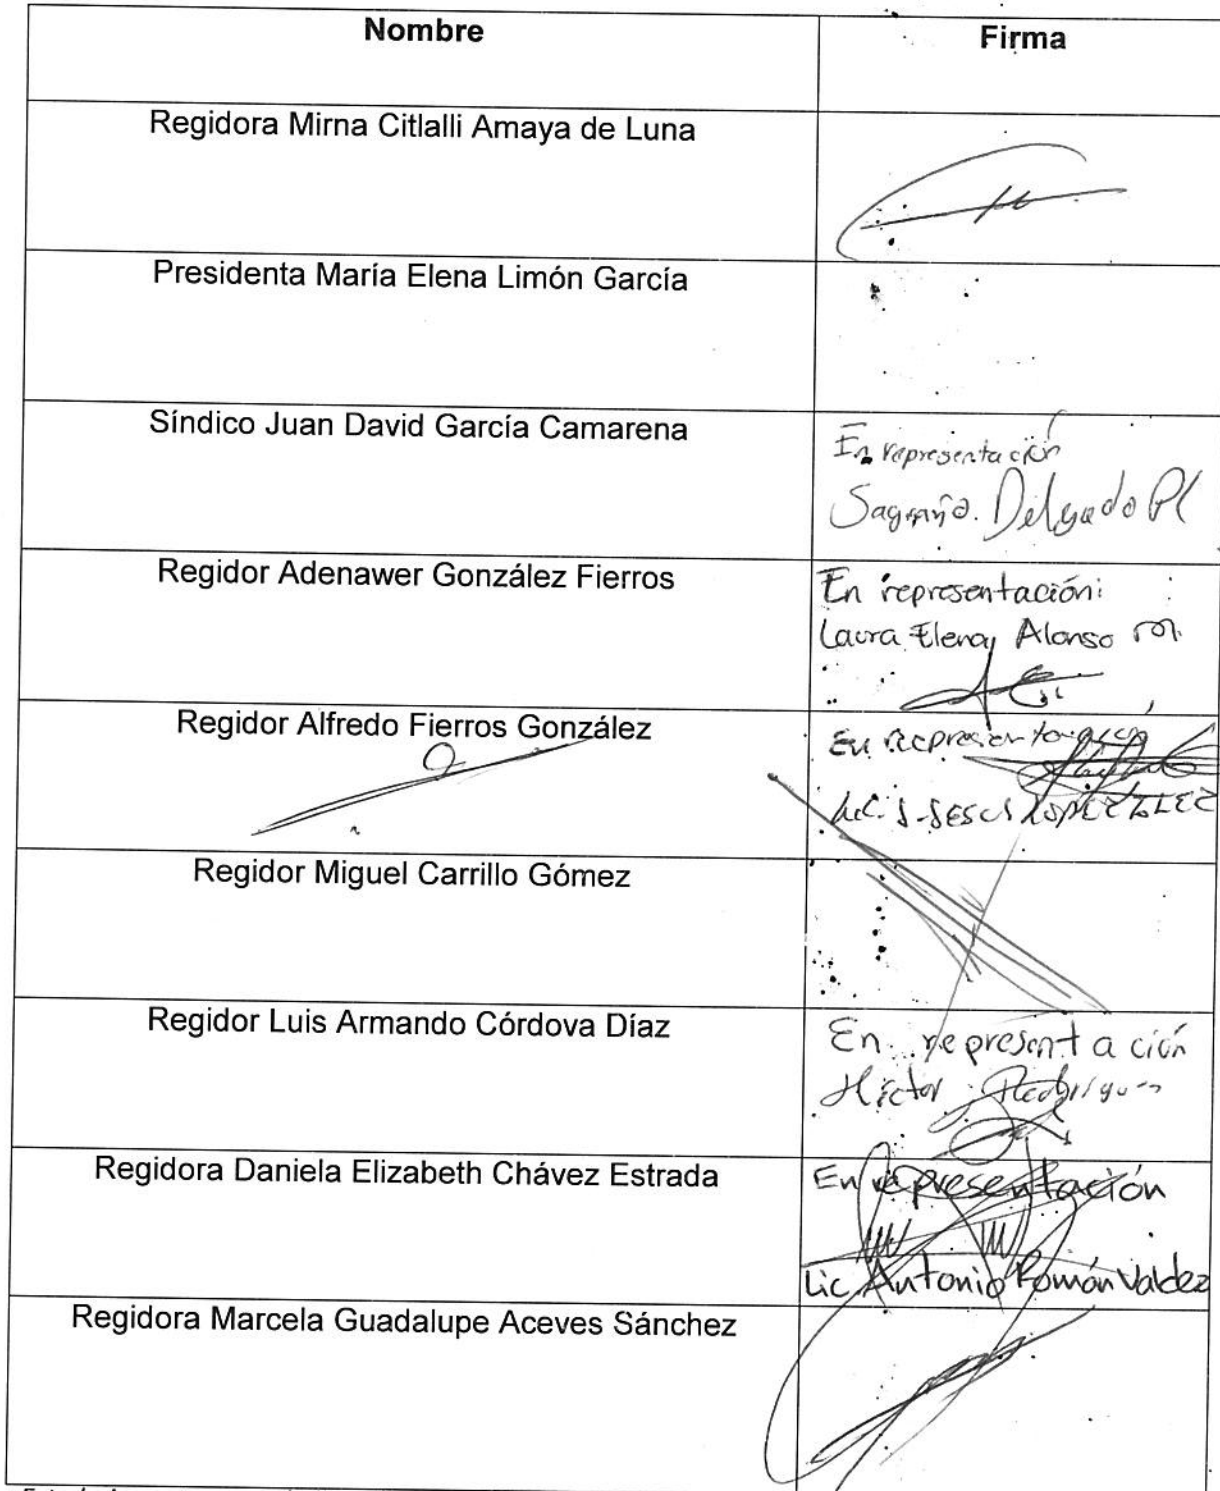 Nombre
Firma
Regidora Mirna Citlalli Amaya de Luna
Presidenta María Elena Limón García
Síndico Juan David García Camarena
En representación
Delgado
Regidor Adenawer González Fierros
En representación:
Laura Elena Alonso M.
Regidor Alfredo Fierros González
En representación
Lic. J. JESUS LOPEZ
Regidor Miguel Carrillo Gómez
Regidor Luis Armando Córdova Díaz
En representación
Héctor
Regidora Daniela Elizabeth Chávez Estrada
En representación
Lic. Antonio Román Valdez
Regidora Marcela Guadalupe Aceves Sánchez